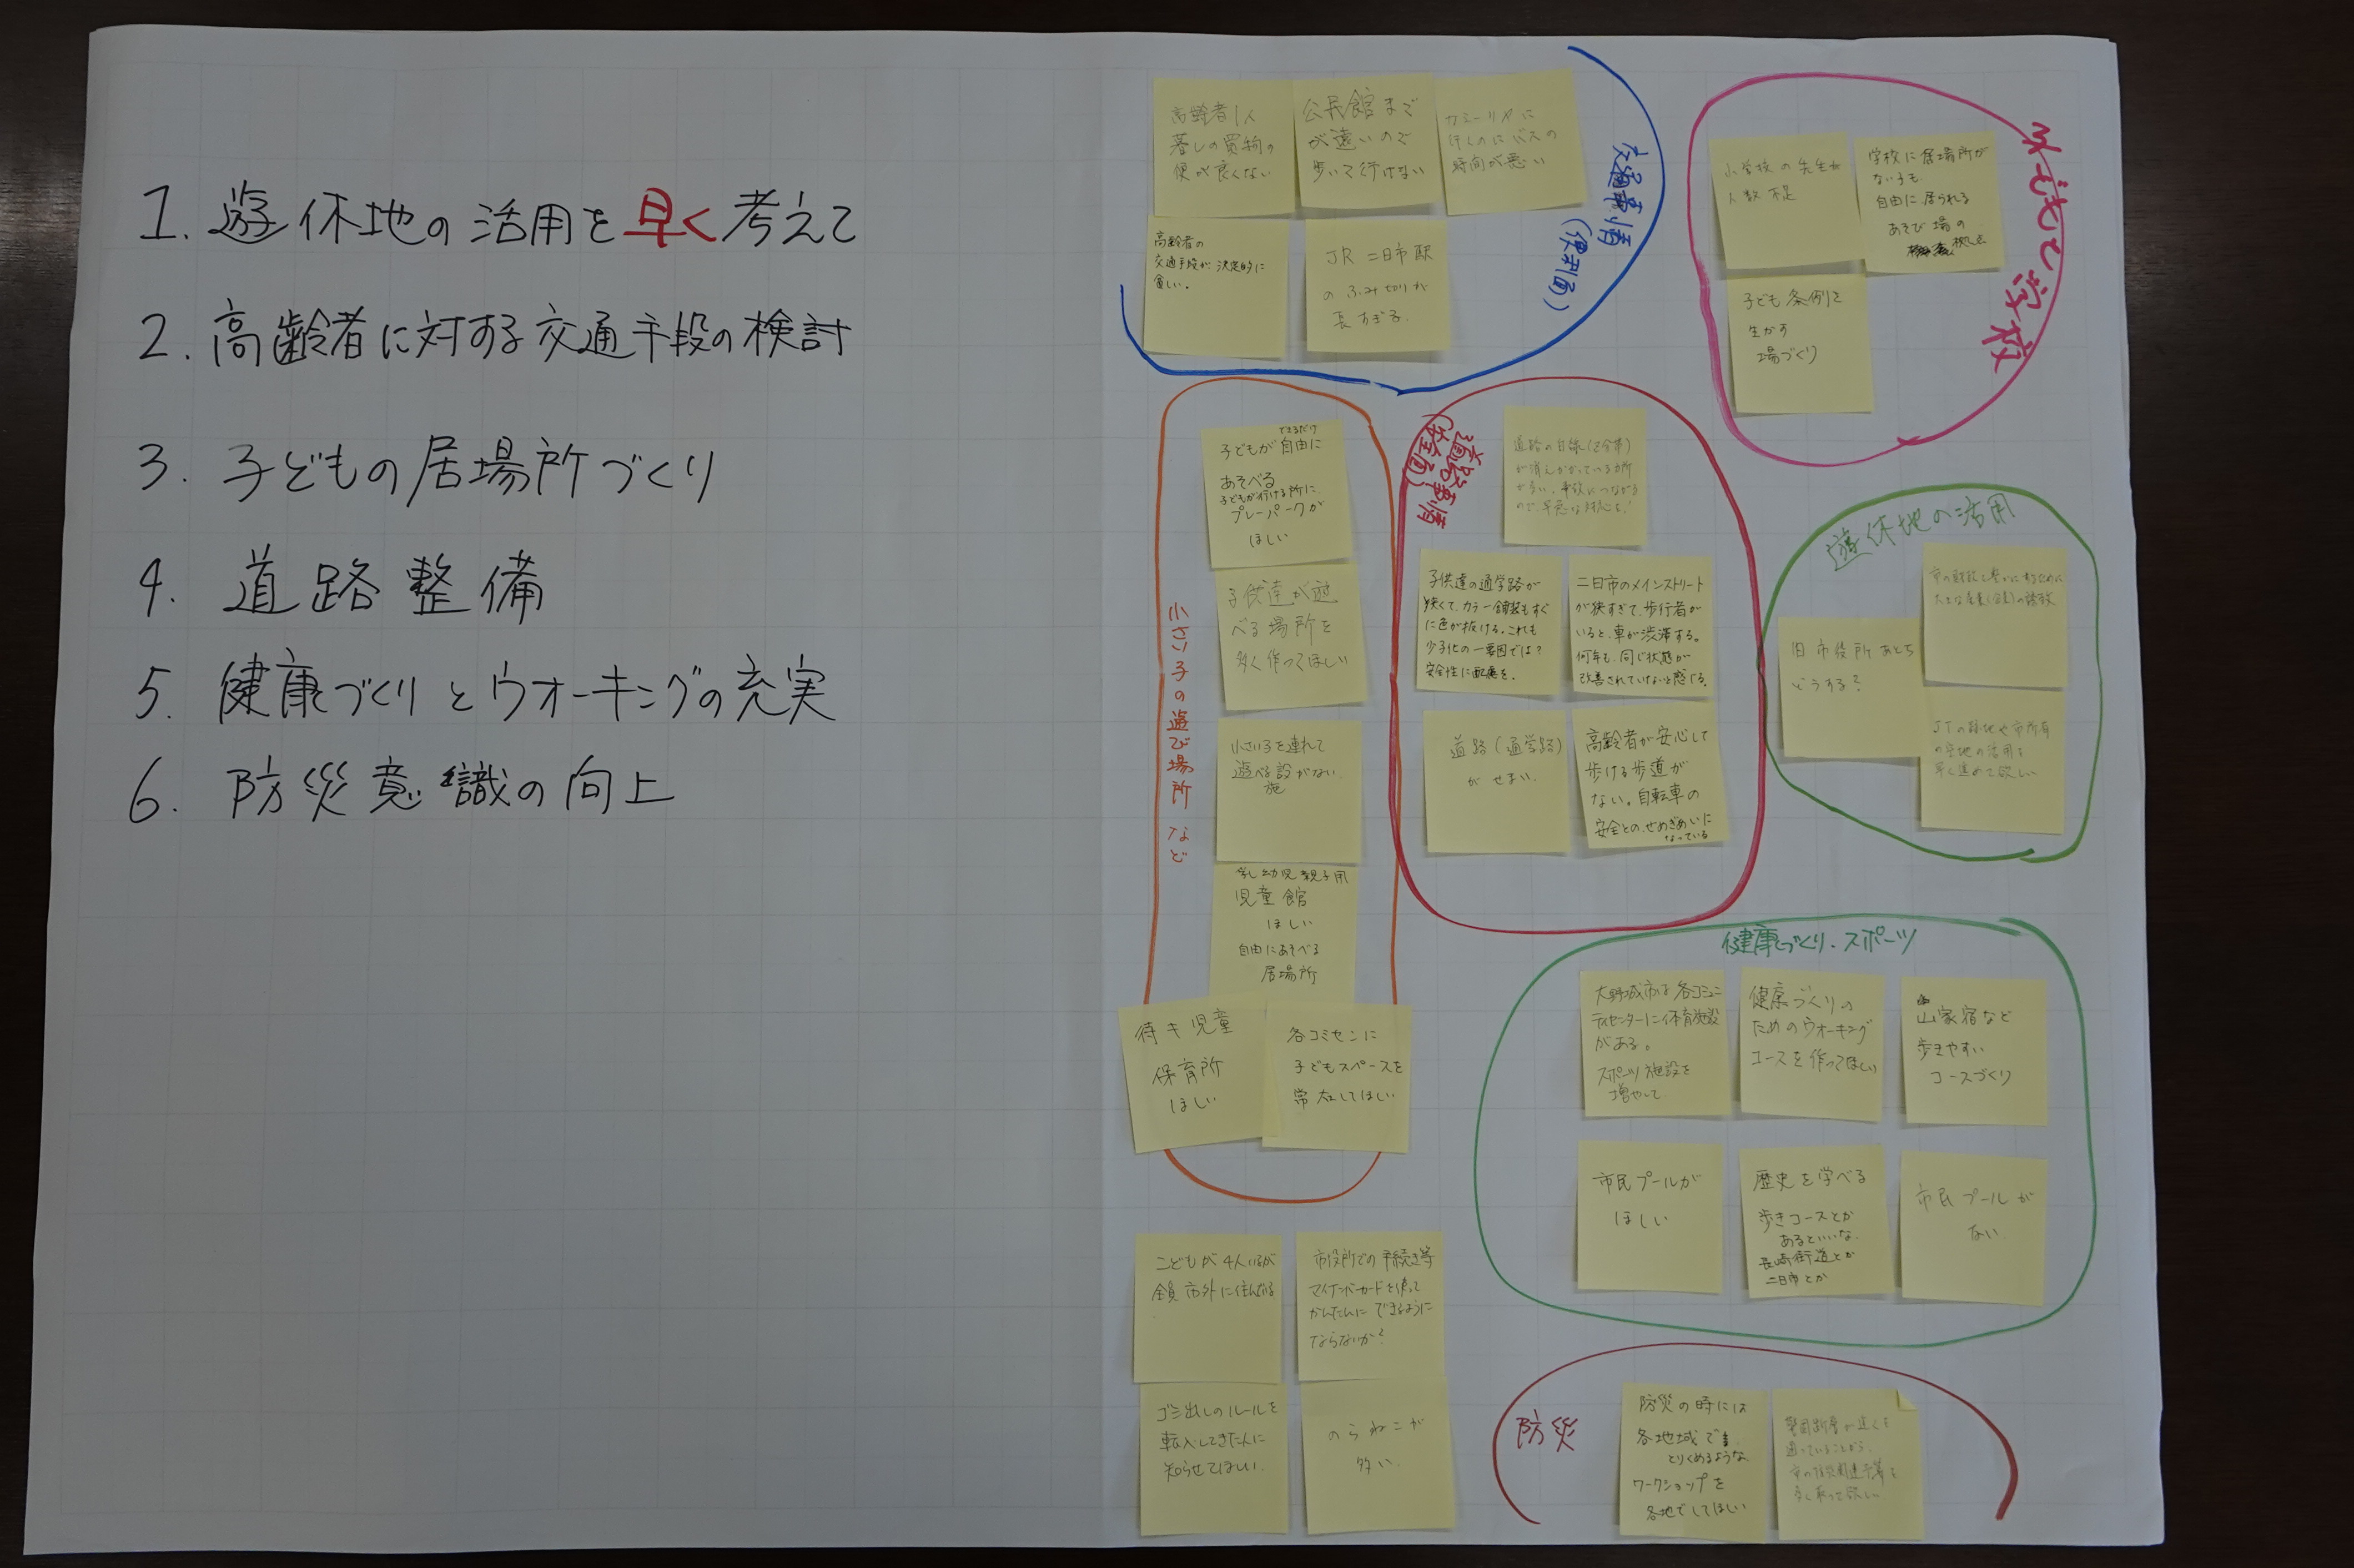 1. 遊休地の活用を早く考えて
2. 高齢者に対する交通手段の検討
3. 子どもの居場所づくり
4. 道路整備
5. 健康づくりとウオーキングの充実
6. 防災意識の向上
交通事情
(便利面)
高齢者1人
暮しの買物の
便が良くない
公民館まで
が遠いので
歩いて行けない
カミーリヤに
行くのにバスの
時間が悪い
高齢者の
交通手段が決定的に
貧しい。
JR 二日市駅
のふみ切りが
長すぎる.
子どもと学校
小学校の先生が
人数不足
学校に居場所が
ない子も
自由に居られる
あそび場の
拠点
子ども条例を
生かす
場づくり
小さい子の遊び場所など
できるだけ
子どもが自由に
あそべる
子どもが行ける所に
プレーパークが
ほしい
子供達が遊
べる場所を
多く作ってほしい
小さい子を連れて
遊べる施設がない.
乳幼児親子用
児童館
ほしい
自由にあそべる
居場所
待キ児童
保育所
ほしい
各コミセンに
子どもスペースを
常在してほしい
道路事情
(安全面)
道路の白線(区分帯)
が消えかかっている箇所
が多い。事故につながる
ので、早急な対応を!
子供達の通学路が
狭くて、カラー舗装もすぐ
に色が抜ける。これも
少子化の一要因では?
安全性に配慮を。
二日市のメインストリート
が狭すぎて、歩行者が
いると、車が渋滞する。
何年も、同じ状態が
改善されていないと感じる。
道路(通学路)
がせまい.
高齢者が安心して
歩ける歩道が
ない。自転車の
安全との、せめぎあいに
なっている
遊休地の活用
市の財政を豊かにするために
大きな産業(企業)の誘致
旧市役所あとち
どうする?
JTの跡地や市所有
の空地の活用を
早く進めて欲しい
健康づくり・スポーツ
大野城市は各コミュニ
ティセンターに体育施設
がある。
スポーツ施設を
増やして.
健康づくりの
ためのウオーキング
コースを作ってほしい
山家宿など
歩きやすい
コースづくり
市民プールが
ほしい
歴史を学べる
歩きコースとか
あるといいな.
長崎街道とか
二日市とか
市民プールが
ない
こどもが4人いるが
全員市外に住んでる
市役所での手続き等
マイナンバーカードを使って
かんたんにできるように
ならないか?
ゴミ出しのルールを
転入してきた人に
知らせてほしい.
のらねこが
多い.
防災
防災の時には
各地域でも
とりくめるような
ワークショップを
各地でしてほしい
警固断層が近くを
通っていることから、
市の防災関連予算を
多く取って欲しい